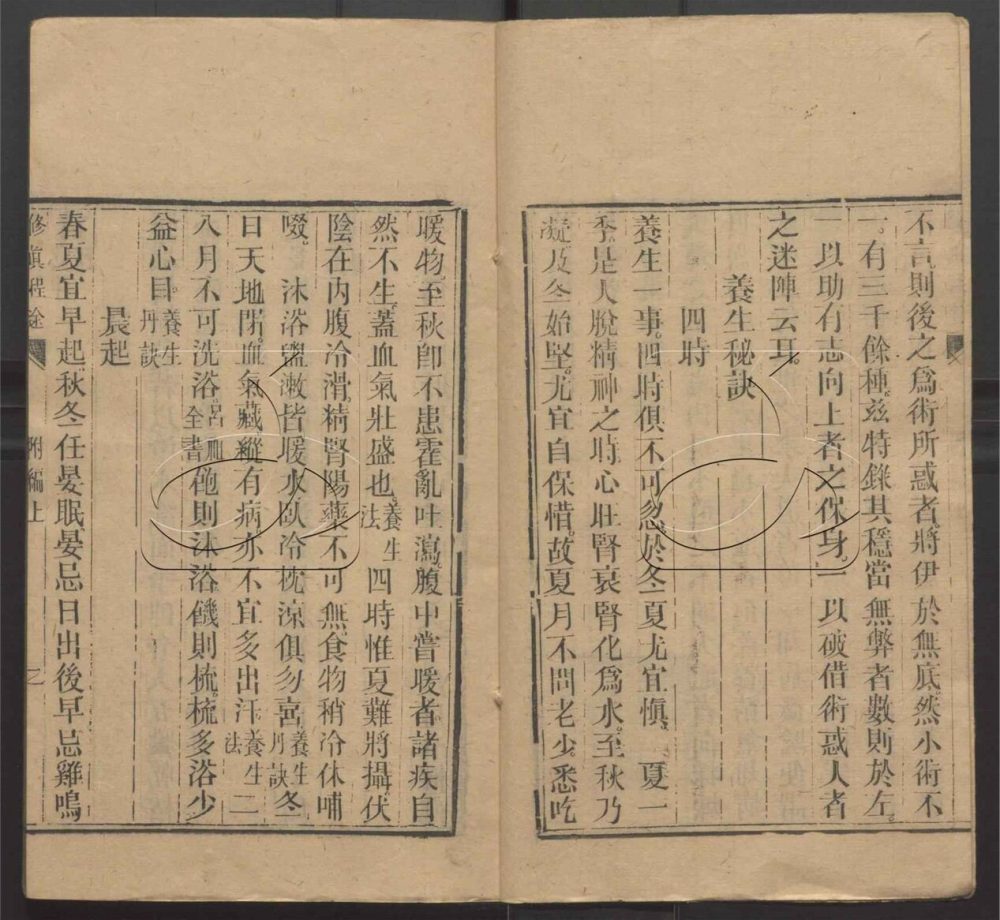 不言則後之爲術所惑者將伊於無底然小術不
一。有三千餘種。兹特錄其穩當無弊者數則於左。
一以助有志向上者之保身。一以破借術惑人者
之迷陣云耳。
養生秘訣
四時
養生一事。四時俱不可忽。於冬夏尤宜愼。 夏一
季是人脫精神之時。心旺腎衰。腎化爲水。至秋乃
凝。及冬始堅。尤宜自保惜。故夏月不問老少。悉吃
暖物。至秋卽不患霍亂吐瀉。腹中嘗暖者。諸疾自
然不生。蓋血氣壯盛也。養生法 四時惟夏難將攝。伏
陰在內腹冷滑。精腎陽藥不可無。食物稍冷休哺
啜。 沐浴盥漱皆暖水。臥冷枕涼俱勿喜。養生丹訣 冬
日天地閉。血氣藏。縱有病亦不宜多出汗。養生法 二
八月不可洗浴。呂祖全書 飽則沐浴。饑則梳。梳多浴少
益心目。養生丹訣
晨起
春夏宜早起。秋冬任晏眠。晏忌日出後。早忌雞鳴
修眞程途 附編上